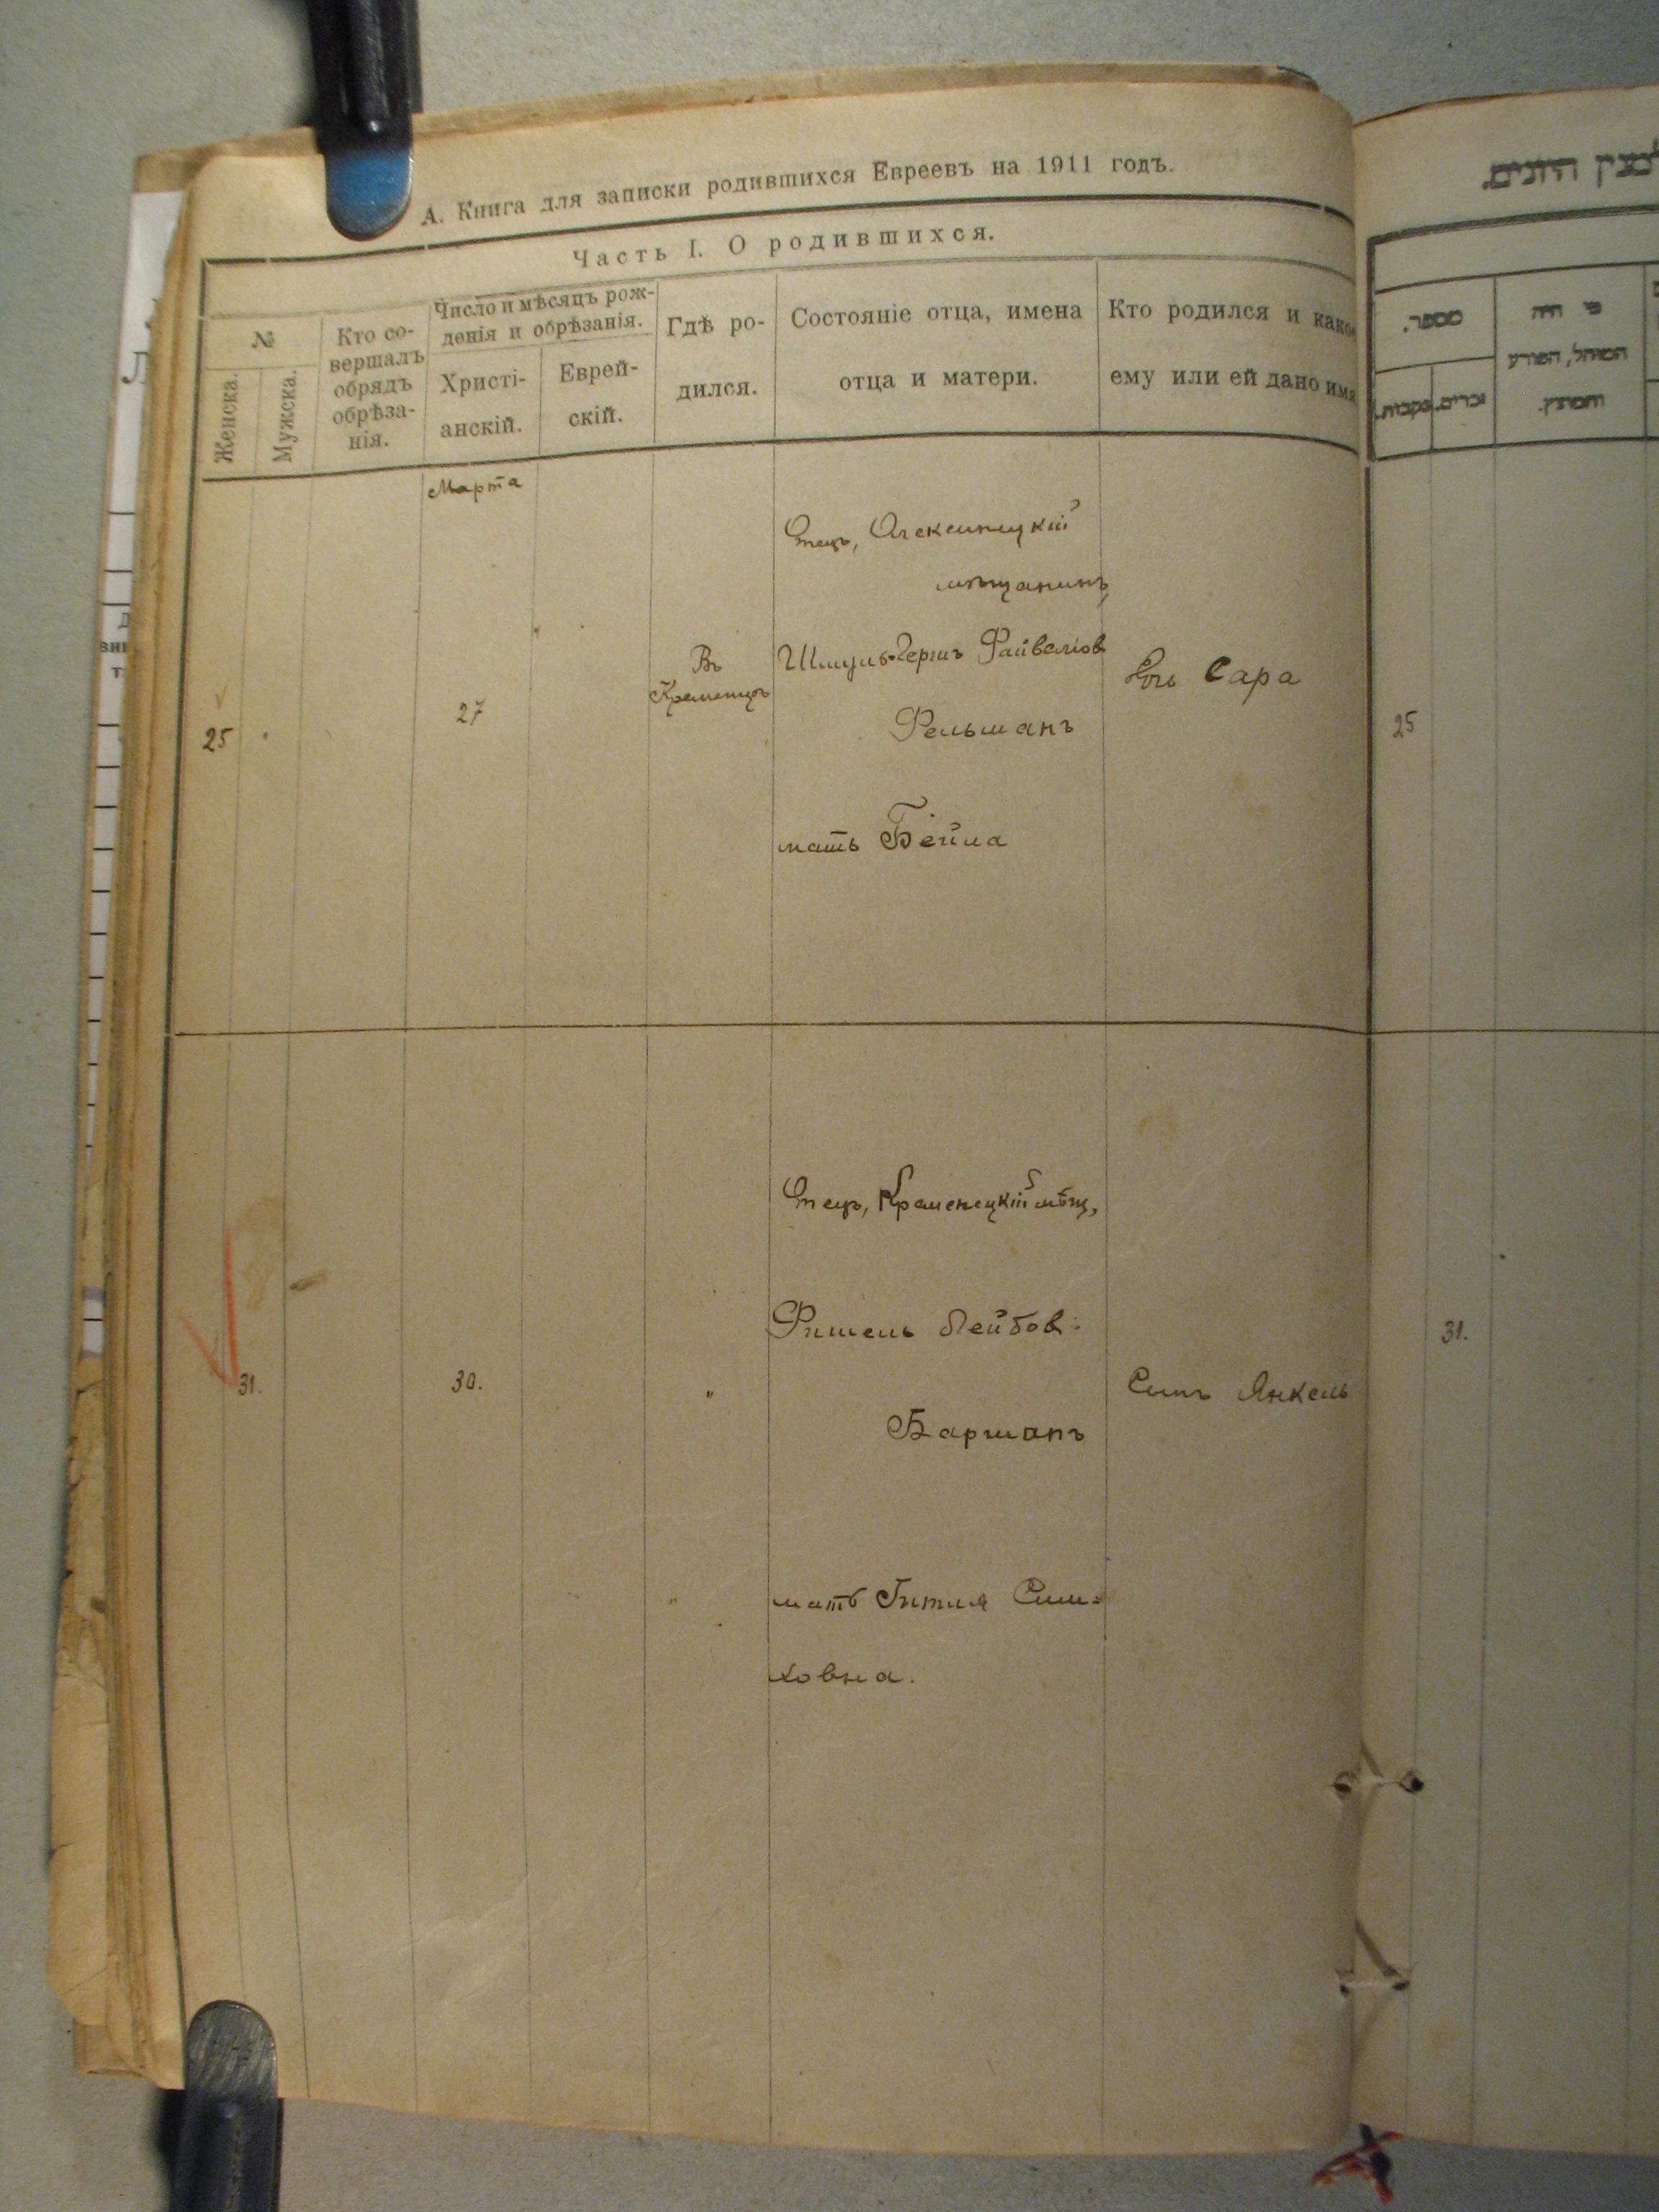 А. Книга для записки родившихся Евреевъ на 1911 годъ.
Часть I. О родившихся.
№
Женска.
Мужска.
Кто со-
вершалъ
обрядъ
обрѣза-
нія.
Число и мѣсяцъ рож-
денія и обрѣзанія.
Христі-
анскій.
Еврей-
скій.
Гдѣ ро-
дился.
Состояніе отца, имена
отца и матери.
Кто родился и какое
ему или ей дано имя
Марта
25
27
Въ
Кременцѣ
Отецъ, Алексинецкій
мѣщанинъ,
Шмуль-Гершъ Файвелiов
Фельманъ
мать Бейла
Дочь Сара
31.
30.
"
Отецъ, Кременецкій мѣщ,
Фишель Лейбов:
Барманъ
"
мать Гитля Сим=
ховна.
Сынъ Янкель
מספר.
נקבות.
זכרים.
מי היה
המוהל, הפורע
והמוצץ.
25
31.